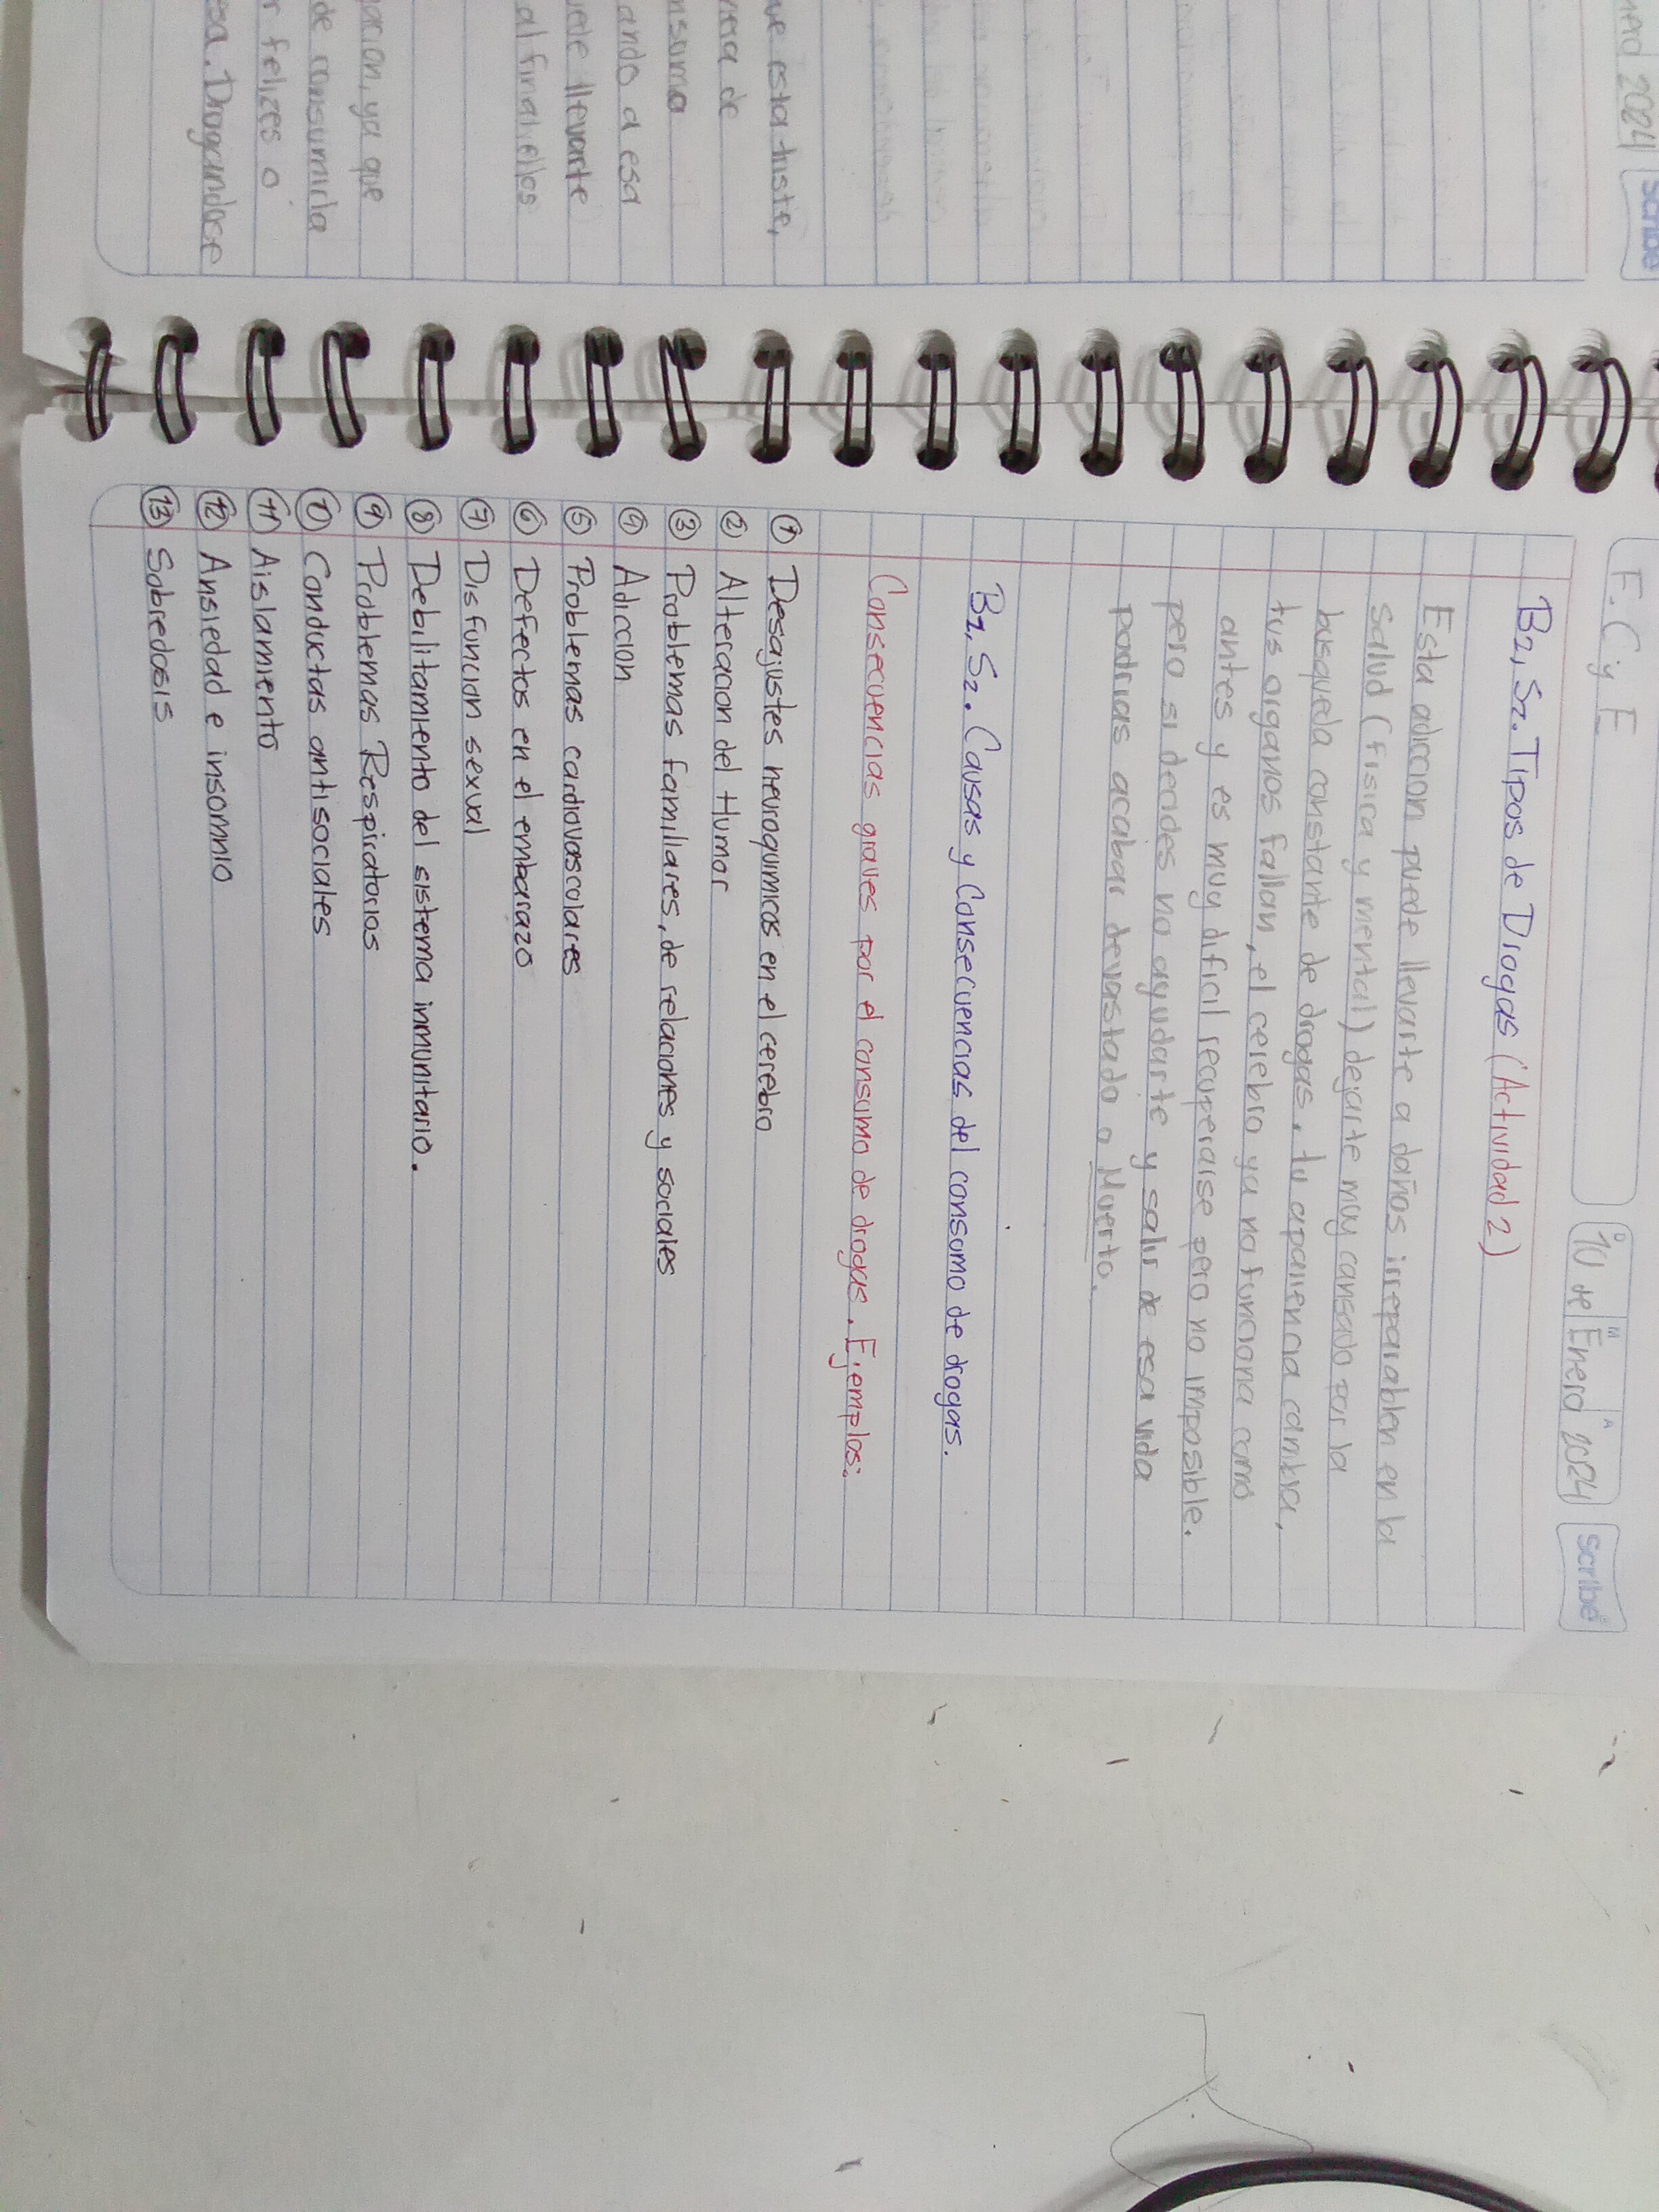 ue esta triste,
nera de
nsumo
ando a esa
uede llevarte
al final ellos
acion, ya que
de consumirla
r felizes o
esa. Drogandose
nero 2024
Scribe
F.C y E
D M A
10 de Enero 2024
Scribe
B2, S2. Tipos de Drogas (Actividad 2)
Esta adiccion puede llevarte a daños irreparablen en la
salud (fisica y mental) dejarte muy cansado por la
busqueda constante de drogas, tu apariencia cambia,
tus organos fallan, el cerebro ya no funciona como
antes y es muy dificil recuperarse pero no imposible.
pero si decides no ayudarte y salir de esa vida
podrias acabar devastado o Muerto.
B2, S2. Causas y Consecuencias del consumo de drogas.
Consecuencias graves por el consumo de drogas. Ejemplos:
1 Desajustes neuroquimicos en el cerebro
2 Alteracion del Humor
3 Problemas familiares, de relaciones y sociales
4 Adiccion
5 Problemas cardiovasculares
6 Defectos en el embarazo
7 Disfuncion sexual
8 Debilitamiento del sistema inmunitario.
9 Problemas Respiratorios
10 Conductas antisociales
11 Aislamiento
12 Ansiedad e insomnio
13 Sobredosis